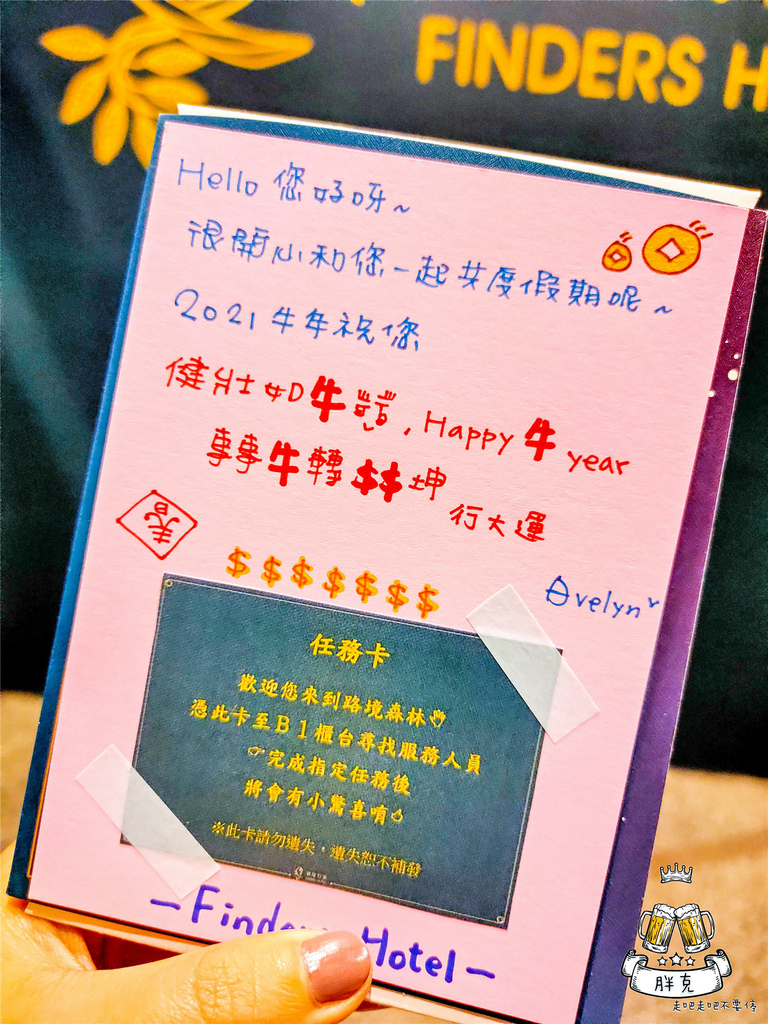 FINDERS H
Hello 您好呀~
很開心和您一起共度假期呢~
2021 牛年祝您
健壯如牛犢, Happy 牛 year
轉轉牛轉$$坤
行大運
春
$ $ $ $ $ $ $
Evelyn
任務卡
歡迎您來到路境森林
憑此卡至B1櫃台尋找服務人員
完成指定任務後
將會有小驚喜唷
※此卡請勿遺失,遺失恕不補發
-Finders Hotel-
胖克
走吧走吧不要停